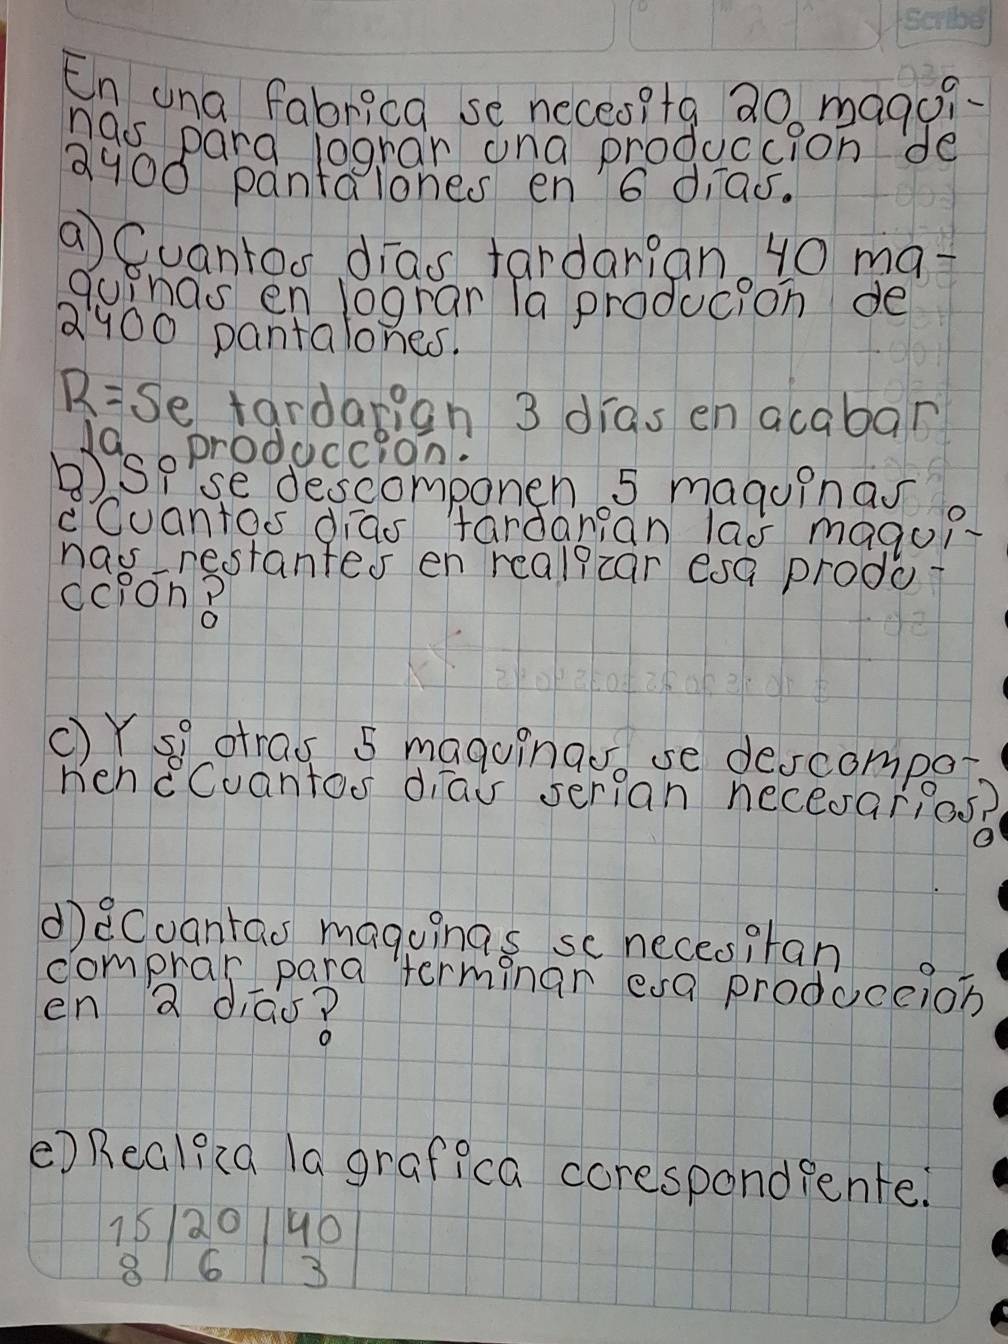 Scribe
En una fabrica se necesita 20 maqui-
nas para lograr una produccion de
2400 pantalones en 6 días.
a) Cuantos días tardarian 40 ma-
quinas en lograr la producion de
2400 pantalones.
R=Se tardarian 3 días en acabar
la produccion.
b) Si se descomponen 5 maquinas
¿Cuantos días tardarian las maqui-
nas restantes en realizar esa produ-
cción?
c) Y si otras 5 maquinas se descompo-
nen ¿Cuantos días serian necesarios?
d) ¿Cuantas maquinas se necesitan
comprar para terminar esa produccion
en 2 días?
e) Realiza la grafica corespondiente.
15 | 20 | 40 |
8 | 6 | 3 |